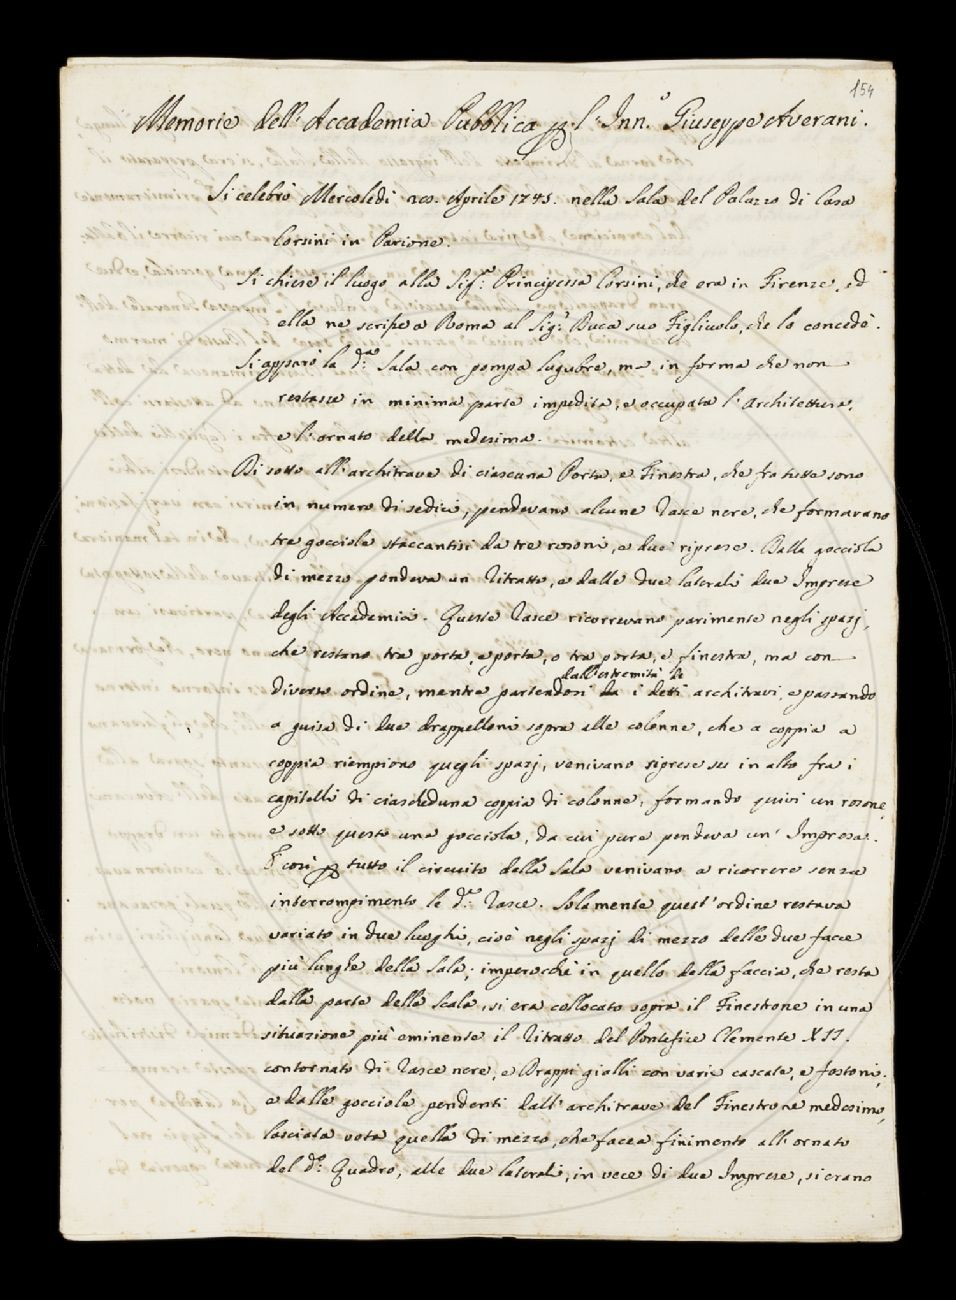 154
Memorie dell'Accademia Pubblica p l'Inn.º Giuseppe Averani.
Si celebrò Mercoledì 20. Aprile 1745. nella Sala del Palazzo di Casa
Corsini in Parione.
Si chiese il luogo alla Sig.ra Principessa Corsini, che ora in Firenze, ed
ella ne scrisse a Roma al Sig.r Duca suo Figliuolo, che lo concedè.
Si apparò la d.a Sala con pompa lugubre, ma in forma che non
restasse in minima parte impedita, e occupata l'Architettura,
e l'ornato della medesima.
Di sotto all'architrave di ciascuna Porta, e Finestra, che fra tutte sono
in numero di sedici, pendevano alcune Fasce nere, che formavano
tre gocciole staccantisi da tre rosoni, e due riprese. Dalla gocciola
di mezzo pendeva un Ritratto, e dalle due laterali due Imprese
degli Accademici. Queste Fasce ricorrevano parimente negli spazj,
che restano tra porta, e porta, o tra porta, e finestra, ma con
dall'estremità de
diverso ordine, mentre partendosi da i detti architravi, e passando
a guisa di due drappelloni sopra alle colonne, che a coppia a
coppia riempiono quegli spazj, venivano riprese su in alto fra i
capitelli di ciascheduna coppia di colonne, formando quivi un rosone,
e sotto questo una gocciola, da cui pure pendeva un'Impresa.
E così p tutto il circuito della Sala venivano a ricorrere senza
interrompimento le d.e Fasce. Solamente quest'ordine restava
variato in due luoghi, cioè negli spazj di mezzo delle due facce
più lunghe della Sala; imperocchè in quello della faccia, che resta
dalla parte della Scala, si era collocato sopra il Finestrone in una
situazione più eminente il Ritratto del Pontefice Clemente XII.
contornato di Fasce nere, e Drappi gialli con varie cascate, e festoni;
e dalle gocciole pendenti dall'architrave del Finestrone medesimo,
lasciata vota quella di mezzo, che facea finimento all'ornato
del d.º Quadro, alle due laterali, in vece di due Imprese, si erano